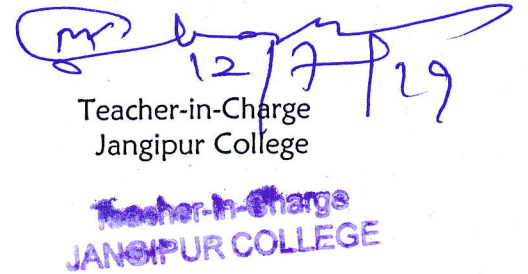 12/7/19
Teacher-in-Charge
Jangipur College
Teacher-in-Charge
JANGIPUR COLLEGE